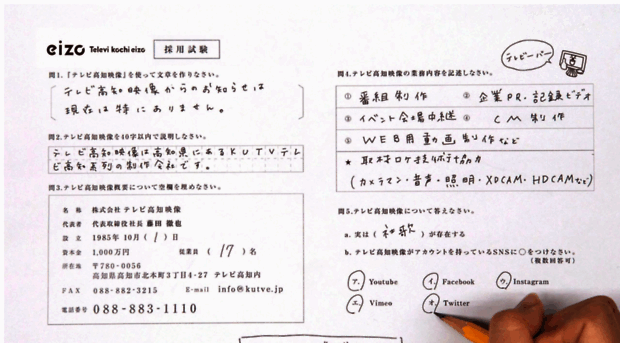 eizo Televi kochi eizo 採用試験
問1.『テレビ高知映像』を使って文章を作りなさい。
テレビ高知映像からのお知らせは
現在は特にありません。
問2.テレビ高知映像を40字以内で説明しなさい。
テレビ高知映像は高知県にあるKUTVテレ
ビ高知系列の制作会社です。
問3.テレビ高知映像概要について空欄を埋めなさい。
名 称 株式会社 テレビ高知映像
代表者 代表取締役社長 藤田 徹也
設 立 1985年 10月 ( 1 ) 日
資本金 1,000万円 従業員 ( 17 ) 名
所在地 〒780-0056
高知県高知市北本町3丁目4-27 テレビ高知内
FAX 088-882-3215 E-mail info@kutve.jp
電話番号 088-883-1110
テレビーバー
問4.テレビ高知映像の業務内容を記述しなさい。
① 番組制作 ② 企業PR・記録ビデオ
③ イベント会場中継 ④ CM制作
⑤ WEB用動画制作など
★ 取材ロケ技術協力
(カメラマン・音声・照明・XDCAM・HDCAMなど)
問5.テレビ高知映像について答えなさい。
a. 実は ( 社歌 ) が存在する
b. テレビ高知映像がアカウントを持っているSNSに○をつけなさい。
(複数回答可)
ア. Youtube イ. Facebook ウ. Instagram
エ. Vimeo オ. Twitter